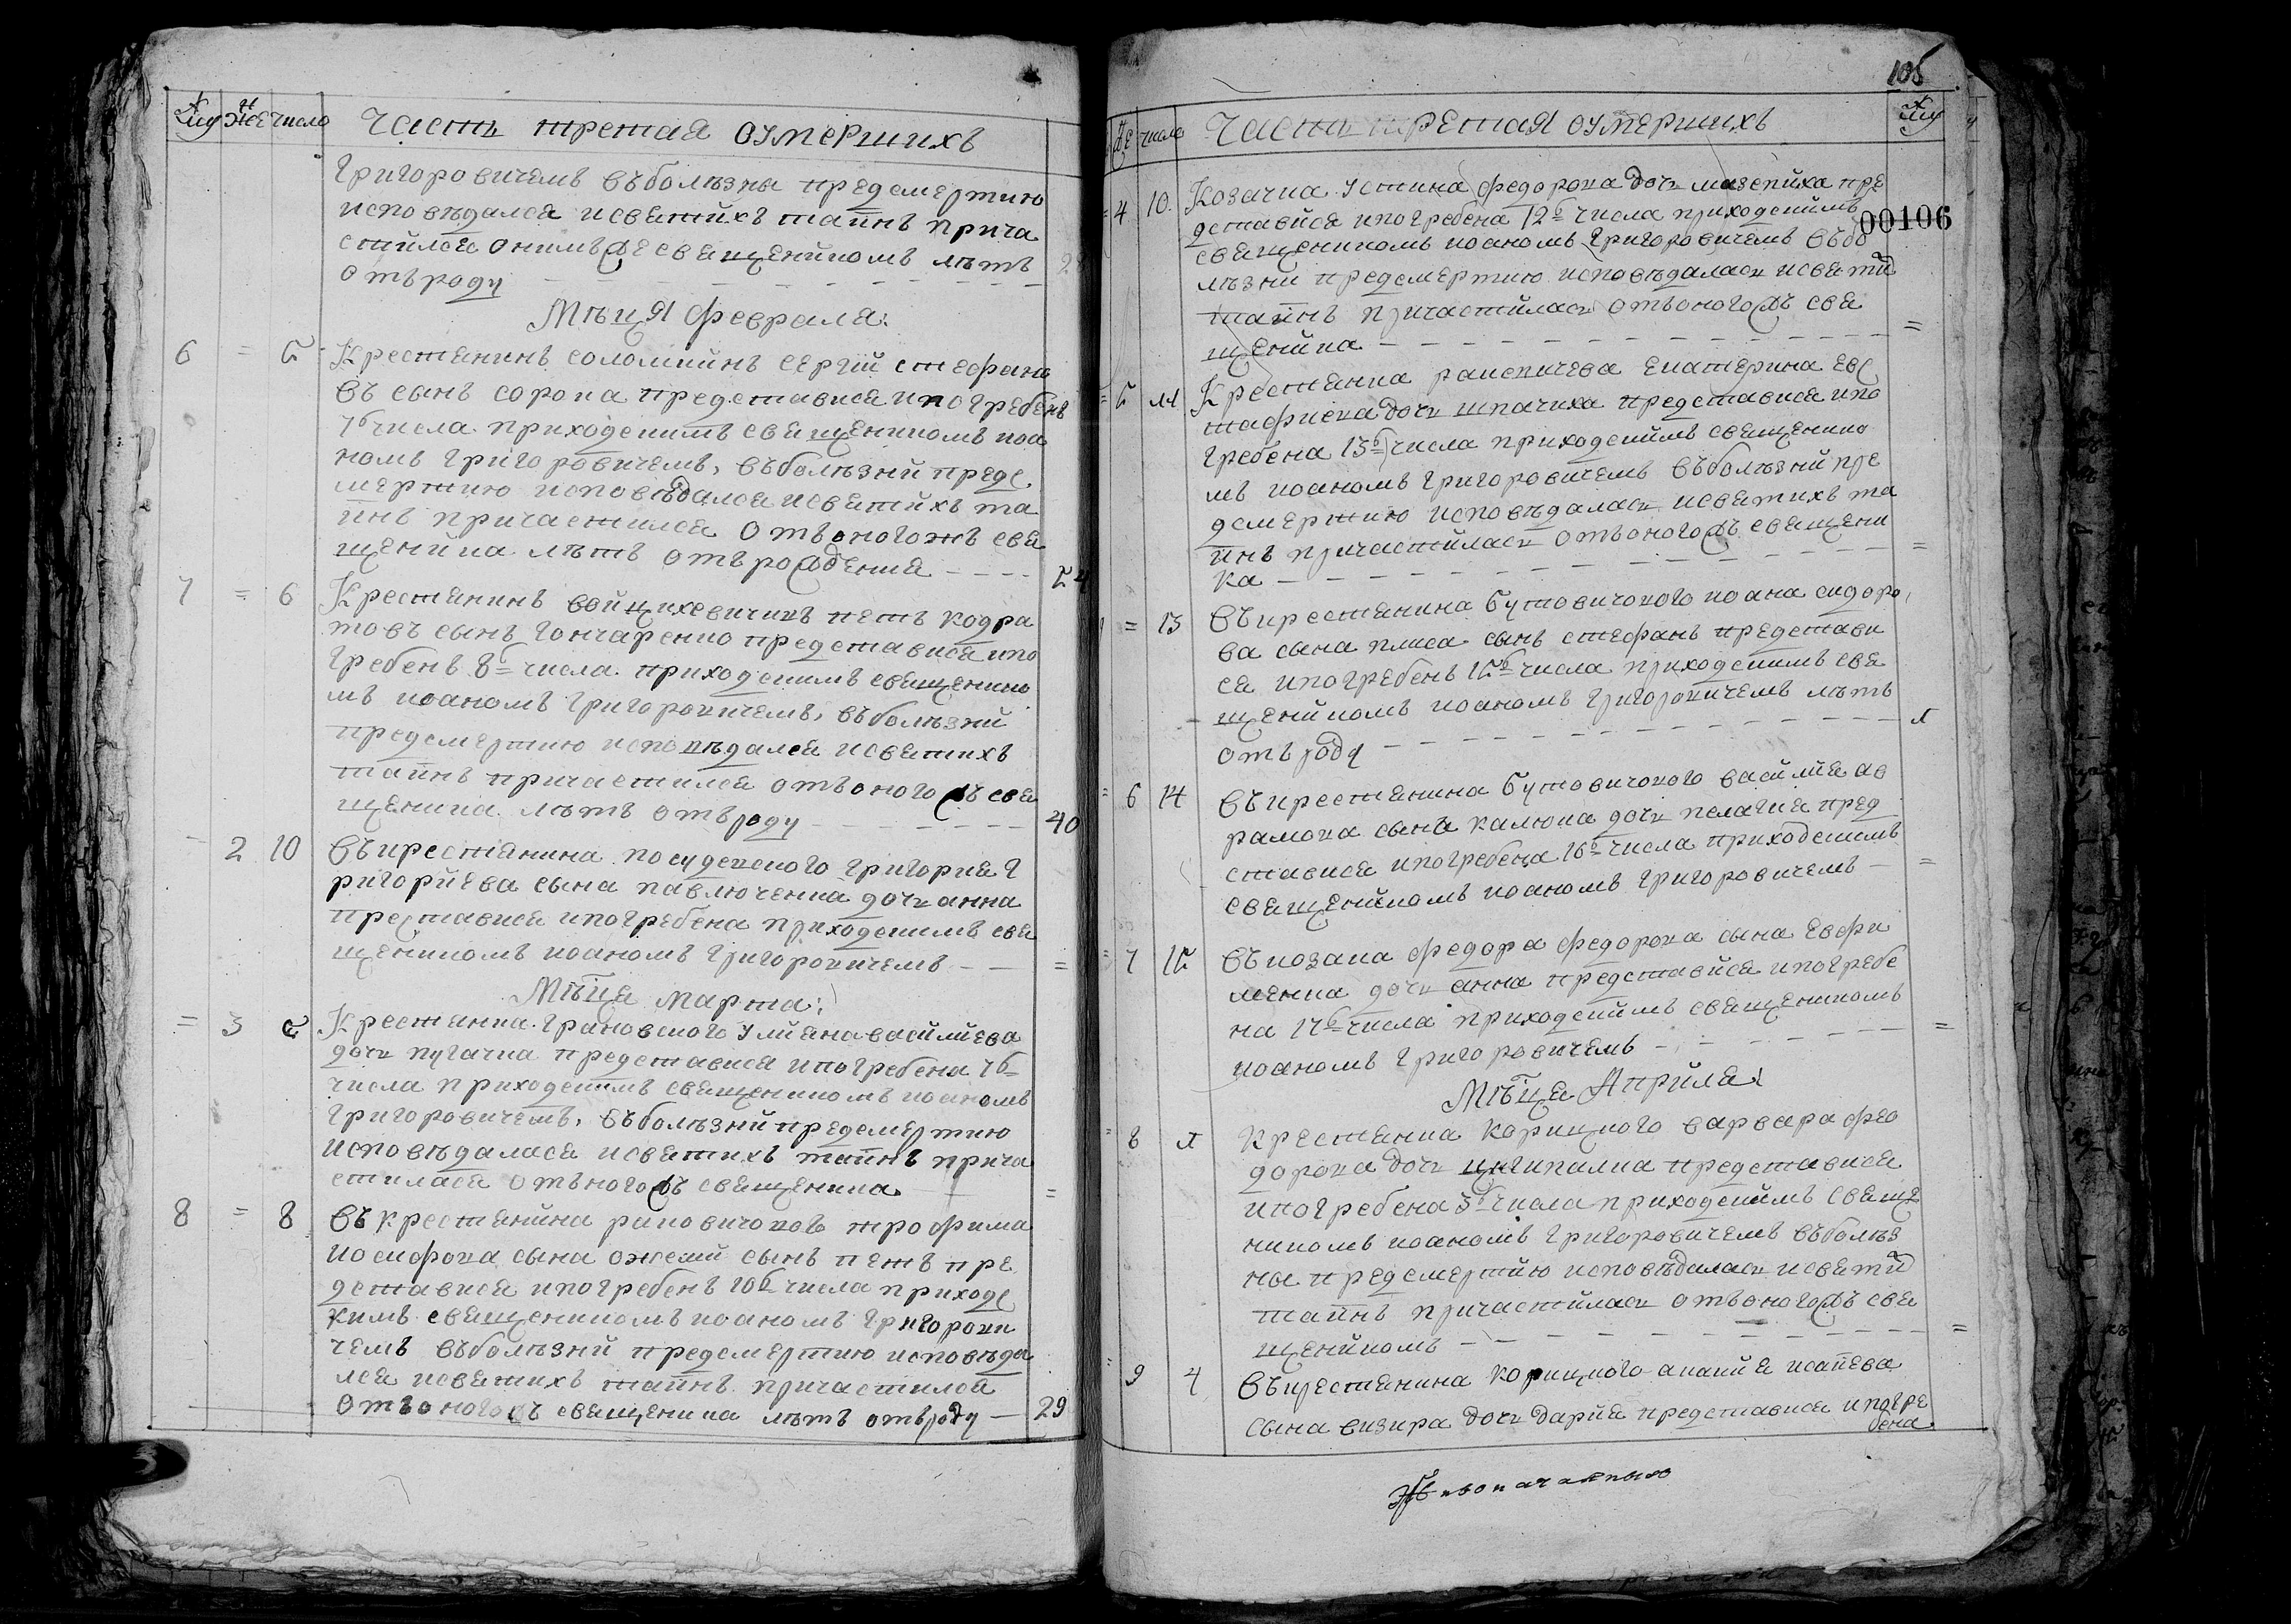 Му Же число Часть третая оумершихъ
григоровичемъ въболѣзны предсмертию
исповѣдался исвятихъ тайнъ прича
стился онимъже священикомъ лѣтъ
отъроду
Мѣця февраля:
6 = 5 Крестянинъ соломкинъ сергий стефано
въ сынъ сорока представися ипогребенъ
7б числа приходскимъ священикомъ иоа
номъ григоровичемъ, въболѣзни предс
мертию исповѣдался исвятихъ та
инъ причастился отъоногожъ свя
щеника лѣтъ отърождения 54
7 = 6 Крестянинъ войцихевичикъ петъ кодра
товъ сынъ гончаренко представися ипо
гребенъ 8б числа приходскимъ священико
мъ иоаномъ григоровичемъ, въболѣзни
предсмертию исповѣдался исвятихъ
тайнъ причастился отъоногожъ свя
щеника лѣтъ отъроду 40
2 10 Въкрестянина посудевского григория г
ригориева сына павлюченка дочь анна
преставися ипогребена приходскимъ свя
щеникомъ иоаномъ григоровичемъ =
Мѣця марта:
= 3 5 Крестянка грановского улияна василиева
дочь пугачка представися ипогребена 7б
числа приходскимъ священикомъ иоаномъ
григоровичемъ, въболѣзни предсмертию
исповѣдалася исвятихъ тайнъ прича
стилася отъногожъ священика =
8 = 8 Въкрестянина раковичового трофима
иосифова сына ожсий сынъ петъ пре
дставися ипогребенъ 10б числа приходс
кимъ священикомъ иоаномъ григорови
чемъ въболѣзни предсмертию исповѣда
лся исвятихъ тайнъ причастился
отъоногожъ священика лѣтъ отъроду 29
105
Же число Часть третая оумершихъ Му
00106
= 4 10 Козачка устина федорова дочь мазепиха пре
дставися ипогребена 12б числа приходскимъ
священикомъ иоаномъ григоровичемъ въбо
лѣзни предсмертию исповѣдаласъ исвяти
тайнъ причастиласъ отъоногожъ свя
щеника =
= 5 11 Крестянка раковичева екатерина евс
тафиева дочь шпачиха представися ипо
гребена 13б числа приходскимъ священико
мъ иоаномъ григоровичемъ въболѣзни пре
дсмертию исповѣдаласъ исвятихъ та
инъ причастиласъ отъоногожъ священи
ка =
= 13 Въкрестянина бутовичового иоана сидоро
ва сына плиса сынъ стефанъ представи
ся ипогребенъ 15б числа приходскимъ свя
щеникомъ иоаномъ григоровичемъ лѣтъ
отъроду 1
= 6 14 Въкрестянина бутовичового василия ав
рамова сына калюка дочь пелагия пред
ставися ипогребена 16б числа приходскимъ
священикомъ иоаномъ григоровичемъ =
= 7 15 Въкозака федора федорова сына евфи
менка дочь анна представися ипогребе
на 17б числа приходскимъ священикомъ
иоаномъ григоровичемъ =
Мѣця Априля:
= 8 1 Крестянка корицкого варвара фео
дорова дочь представися
ипогребена 3б числа приходскимъ свяще
никомъ иоаномъ григоровичемъ въболѣз
ны предсмертию исповѣдаласъ исвяти
тайнъ причастиласъ отъоногожъ свя
щеникомъ =
= 9 4 Въкрестянина корицкого анания исаиева
сына визира дочь дария представися ипогре
бена